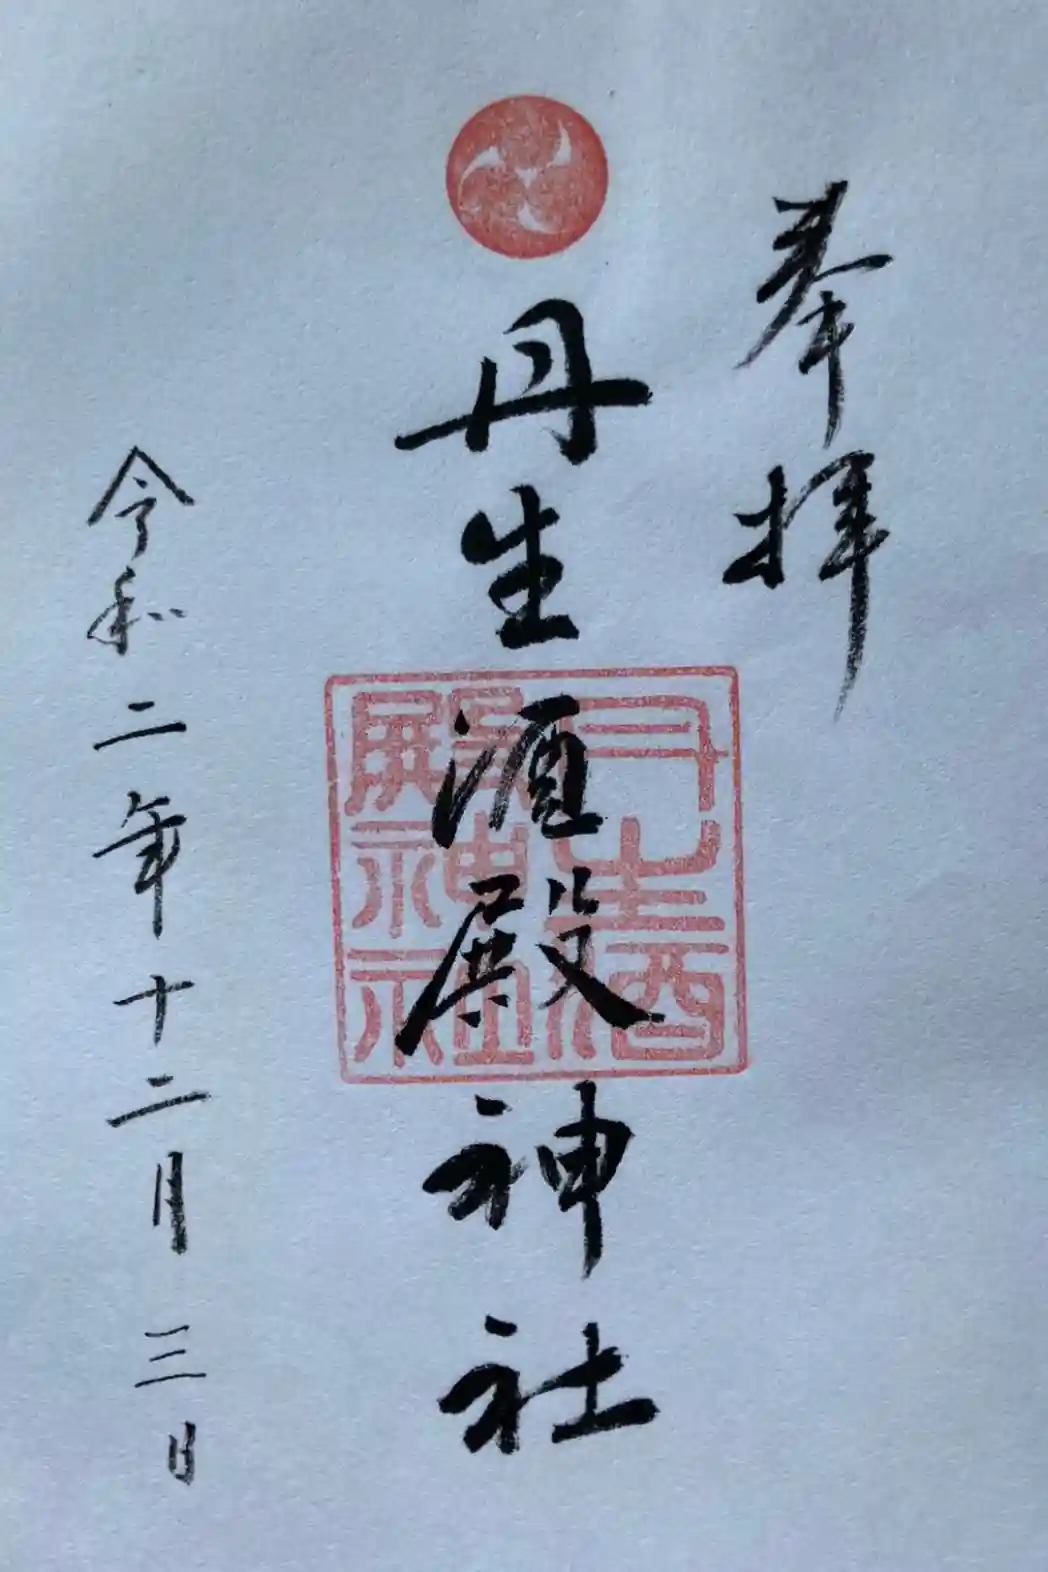 奉拝
丹生酒殿神社
丹生酒
殿神社
令和二年十二月三日